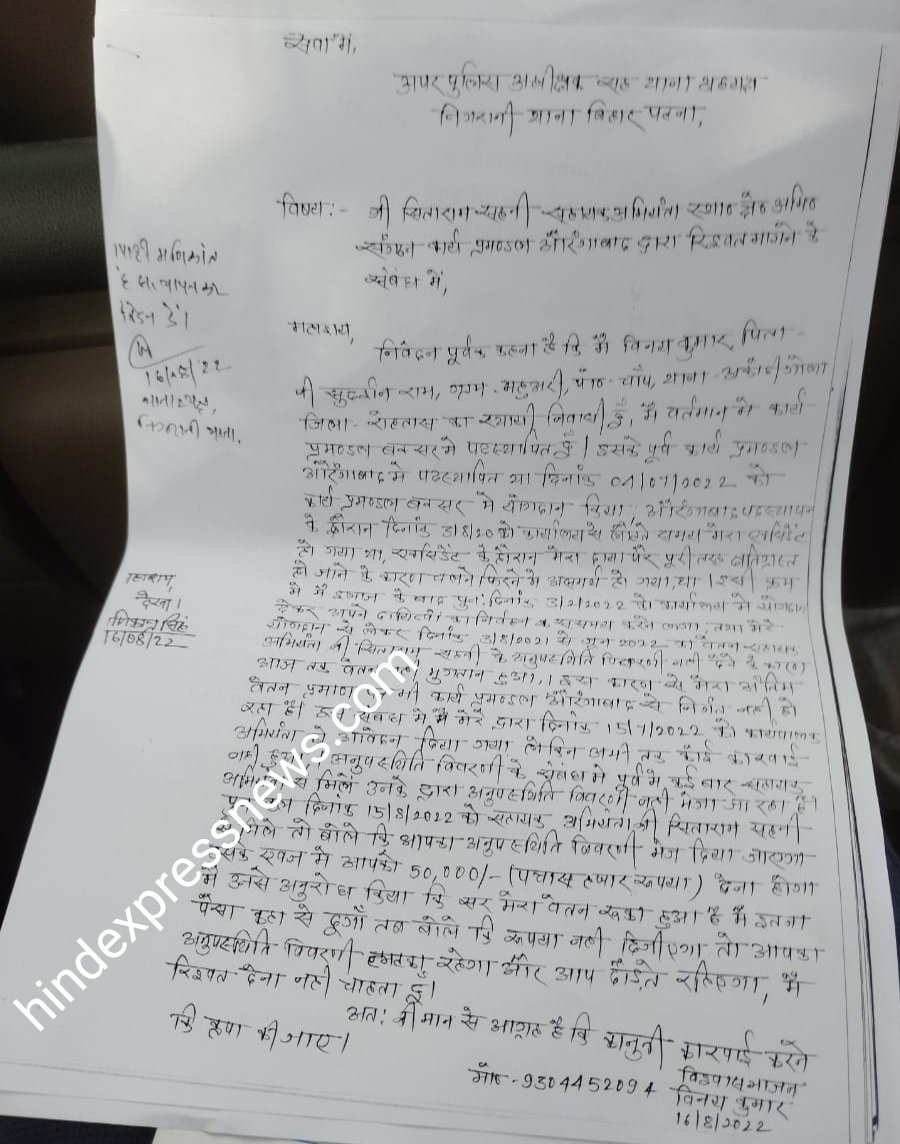 सेवा में,
अपर पुलिस अधीक्षक सह थाना अध्यक्ष
निगरानी थाना बिहार पटना,
विषय:- श्री सिताराम सहनी सहायक अभियंता स्था० क्षे० अभि०
संगठन कार्य प्रमण्डल औरंगाबाद द्वारा रिश्वत मांगने के
संबंध में,
महाशय,
निवेदन पूर्वक कहना है कि मैं विनय कुमार, पिता-
श्री सुदर्शन राम, ग्राम-महुअरी, पो०-चाँप, थाना-अकोढ़ी गोला
जिला-रोहतास का स्थायी निवासी हूँ, मैं वर्तमान में कार्य
प्रमण्डल बक्सर में पदस्थापित हूँ। इसके पूर्व कार्य प्रमण्डल
औरंगाबाद में पदस्थापित था दिनांक 04/07/2022 को
कार्य प्रमण्डल बक्सर में योगदान किया, औरंगाबाद पदस्थापन
के दौरान दिनांक 3/8/20 को कार्यालय से लौटते समय मेरा एक्सिडेंट
हो गया था, एक्सिडेंट के दौरान मेरा दाया पैर पूरी तरह क्षतिग्रस्त
हो जाने के कारण चलने फिरने में असमर्थ हो गया था। इसी क्रम
में मैं इलाज के बाद पुन: दिनांक 3/2/2022 को कार्यालय में योगदान
देकर अपने दायित्वों का निर्वहन करने लगा, तथा मेरे
योगदान से लेकर दिनांक 3/8/2021 से जून 2022 का वेतन सहायक
अभियंता श्री सिताराम सहनी के अनुपस्थिति विवरणी नहीं देने के कारण
आज तक वेतन नहीं भुगतान हुआ, इस कारण से मेरा अंतिम
वेतन प्रमाण पत्र भी कार्य प्रमण्डल औरंगाबाद से निर्गत नहीं हो
रहा है। इस संबंध में मेरे द्वारा दिनांक 15/7/2022 को कार्यपालक
अभियंता को आवेदन दिया गया लेकिन अभी तक कोई कारवाई
नहीं हुई अनुपस्थिति विवरणी के संबंध में पूर्व में कई बार सहायक
अभियंता से मिले उनके द्वारा अनुपस्थिति विवरणी नहीं भेजा जा रहा है।
दिनांक 15/8/2022 को सहायक अभियंता श्री सिताराम सहनी
से मिले तो बोले कि आपका अनुपस्थिति विवरणी भेज दिया जाएगा
उसके एवज में आपको 50,000/- (पचास हजार रूपया) देना होगा
मैं उनसे अनुरोध किया कि सर मेरा वेतन रूका हुआ है मैं इतना
पैसा कहा से दूगाँ तब बोले कि रूपया नहीं दिजीएगा तो आपका
अनुपस्थिति विवरणी रहेगा और आप दौड़ते रहिएगा, मैं
रिश्वत देना नहीं चाहता हूँ।
अत: श्री मान से आग्रह है कि कानुनी कारवाई करने
कि कृपा की जाए।
विश्वासभाजन
मो०-9304452094
विनय कुमार
16/8/2022
सत्यापन कर
16/08/22
निगरानी थाना.
महाशय,
देखा।
16/08/22
hindexpressnews.com